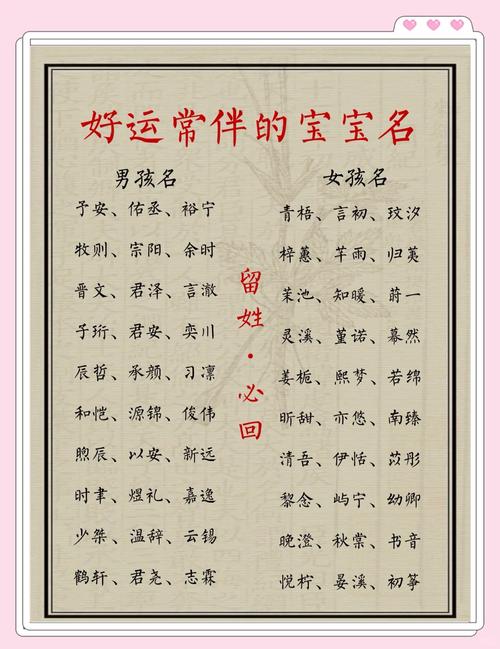 好运常伴的宝宝名
男孩名
予安、佑丞、裕宁
牧则、宗阳、余时
晋文、君泽、言澈
子珩、君安、奕川
辰哲、承颜、习凛
和恺、源锦、俊伟
煦辰、以安、新远
时聿、煜礼、嘉逸
少桀、温辞、云锡
鹤轩、君尧、志霖
留姓·必回
女孩名
青梧、言初、玟汐
梓蕙、芊雨、归荑
茉池、知暖、蔚一
灵溪、堇诺、蓦然
姜栀、熙梦、若绵
昕甜、亦悠、南臻
清吾、伊恬、苡彤
黎念、屿宁、幼卿
晚澄、秋棠、书音
悦柠、晏溪、初筝